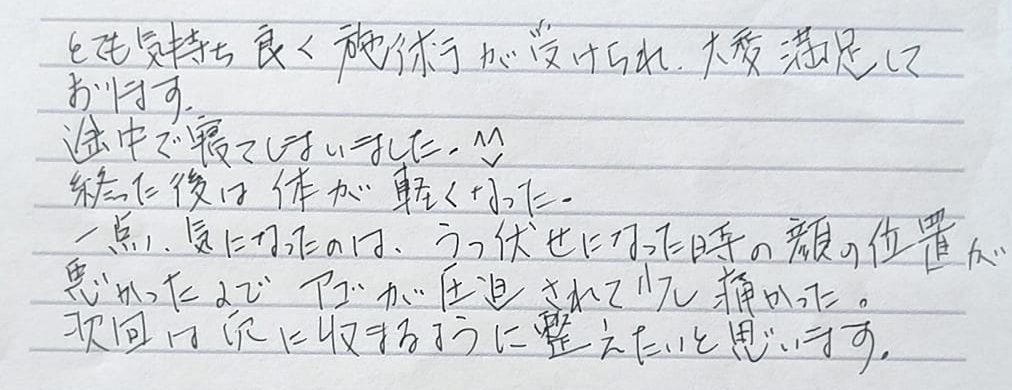 とても気持ち良く施術が受けられ、大変満足して
おります。
途中で寝てしまいました。^^
終った後は体が軽くなった。
一点、気になったのは、うつ伏せになった時の顔の位置が
悪かったので アゴが圧迫されて少し痛かった。
次回は穴に収まるように整えたいと思います。